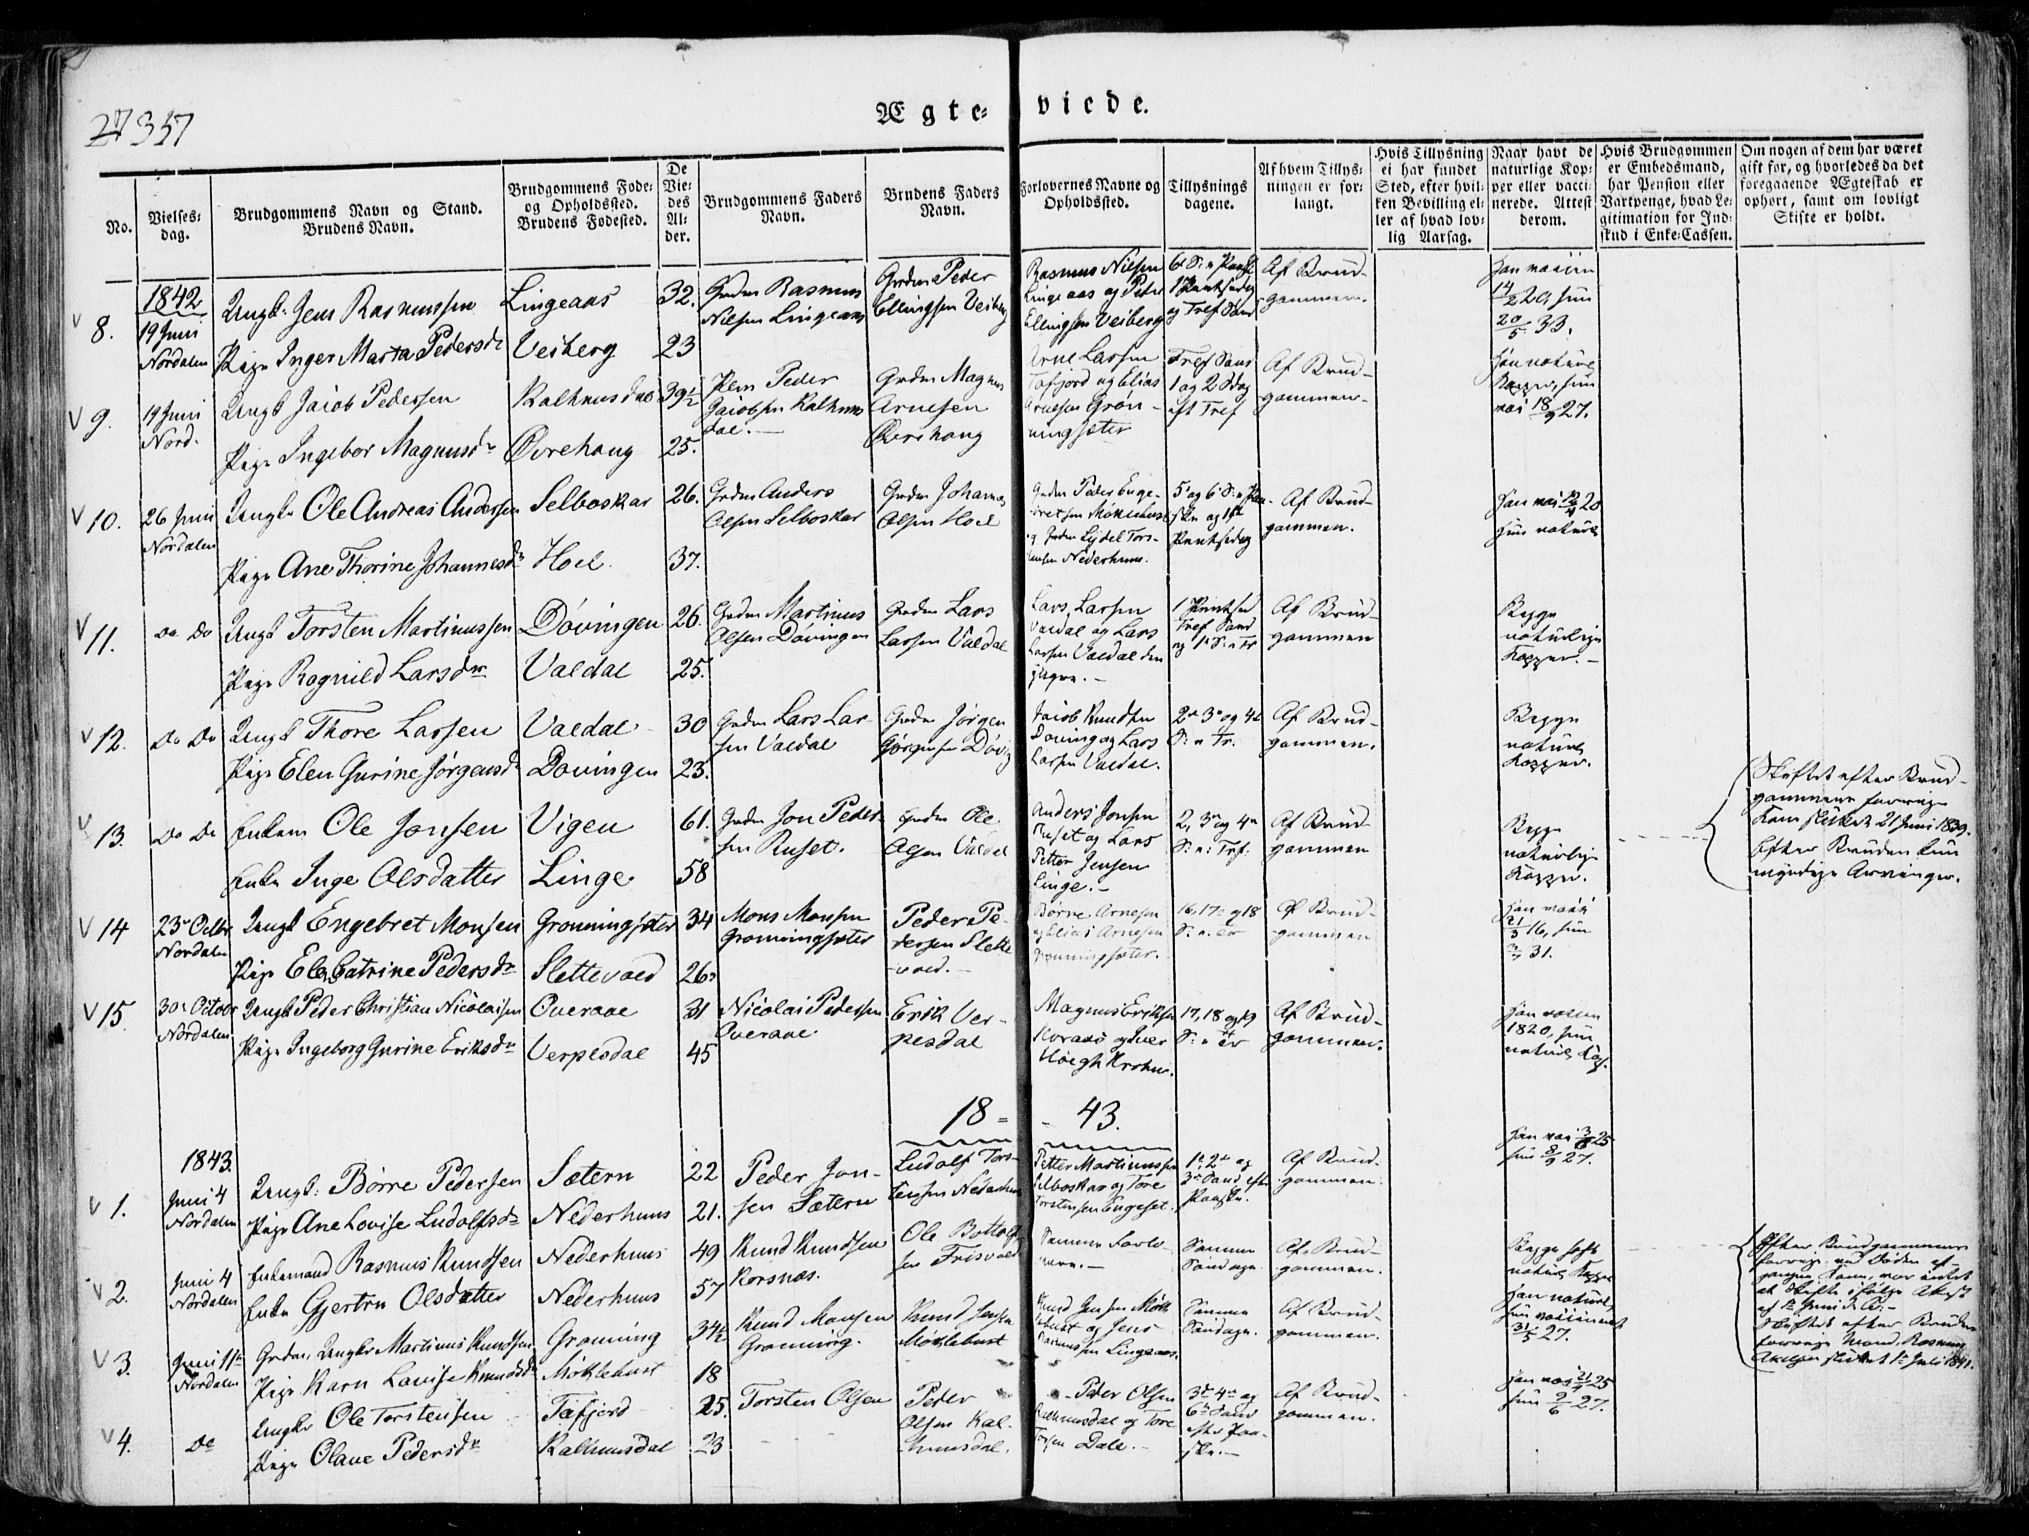 27357
Ægte- viede.
No.
Vielses-
dag.
Brudgommens Navn og Stand.
Brudens Navn.
Brudgommens Føde-
og Opholdssted.
Brudens Fødested.
De
Vie-
des
Al-
der.
Brudgommens Faders
Navn.
Brudens Faders
Navn.
Forlovernes Navne og
Opholdssted.
Tillysnings
dagene.
Af hvem Tillys-
ningen er for-
langt.
Hvis Tillysning
ei har fundet
Sted, efter hvil-
ken Bevilling el-
ler af hvad lov-
lig Aarsag.
Naar havt de
naturlige Kop-
per eller vacci-
nerede. Attest
derom.
Hvis Brudgommen
er Embedsmand,
har Pension eller
Vartpenge, hvad Le-
gitimation for Ind-
skud i Enke-Cassen.
Om nogen af dem har været
gift før, og hvorledes da det
foregaaende Ægteskab er
ophørt, samt om lovligt
Skifte er holdt.
1842
8.
19 Juni
Nordalen
Ungk. Jens Rasmussen
Pige Inger Marta Pedersdr
Lingeaas
Veiberg
32.
23
Grdm Rasmus
Nilsen Lingeaas
Grdm Peder
Ellingsen Veiberg
Rasmus Nilsen
Lingeaas og Peder
Ellingsen Veiberg
Af Brud-
gommen.
14/2 20, hun
20/5 33.
9.
19 Juni
Nord.
Ungk Jacob Pedersen
Pige Ingebor Magnusdr
Kalhusdal
Øvrehoug
39½
25.
Plm Peder
Jacobsen Kalhus
dal.
Grdm Magnus
Arnesen
Øvrehoug
Arne Larsen
Tafjord og Elias
Arnesen Grøn-
ningsæter
Tref Sønd
1 og 2 Sdag
eft Tref
Af Brud-
gommen.
18/9 27.
10.
26 Juni
Nordalen
Ungk Ole Andreas Andersen
Pige Ane Thorine Johannesdr
Selboskar
Hoel.
26.
37.
Grdm Anders
Olsen Selboskar
Grdm Johannes
Olsen Hoel
Af Brud-
gommen.
11.
Do Do
Ungk Torsten Martinussen
Pige Ragnild Larsdr
Døvingen
Valdal
26.
25.
Grdm Martinus
Olsen Døvingen
Grdm Lars
Larsen Valdal
Lars Larsen
Valdal og Lars
Larsen Valdal den
yngre.
Af Brud-
gommen
Begge
naturlige
Kopper.
12.
Do Do
Ungk Thore Larsen
Pige Elen Gurine Jørgensdr
Valdal
Dovingen
30
23.
Grdm Lars Lar-
sen Valdal
Grdm Jørgen
Jørgensen Døving
Jacob Knudsen
Doving og Lars
Larsen Valdal.
2den 3die og 4de
S. e. Tr.
Af Brud-
gommen.
Begge
naturl
Kopper.
13.
Do Do
Enkem Ole Jonsen
Enke Inge Olsdatter
Vigen
Linge
61.
58
Grdm Jon Peder-
sen Ruset.
Grdm Ole
Olsen Valdal
Anders Jonsen
Ruset og Lars
Petter Jensen
Linge.
2, 3die og 4de
S: e: Tref:
Af Brud-
gommen
Begge
naturlige
Kopper.
Skiftet efter Brud-
gommens forrige
Kone sluttet 21 Juni 1839.
Efter Bruden kun
myndige Arvinger.
14
23de Octbr
Nordalen
Ungk Engebret Monsen
Pige Elen Catrine Pedersdr
Gronningsæter
Slettevold
34
26
Mons Monsen
Gronningsæter
Peder Pe-
dersen Slette
-vold.
Børre Arnesen
og Elias Arnesen
Gronningsæter.
16, 17de og 18
S. e. Tr
Af Brud-
gommen
15
30te Octobr
Nordalen
Ungk Peder Christian Nicolaisen
Pige Ingeborg Gurine Eriksdr
Overaae
Verpesdal
31
45
Nicolai Pedersen
Overaae
Erik Ver-
pesdal
Magnus Eriksen
Korsnæs og Iver
Høegh Krohn.
17, 18 og 19
S. e. Tr
Af Brud-
gommen.
1820, hun
naturl Kop.
18 - - 43.
1843.
1.
Juni 4
Nordalen
Ungk: Børre Pedersen
Pige Ane Lovise Ludolfsdr
Sætern
Nederhuus
22
21.
Peder Jon-
sen Sætern
Ludolf Tors-
tensen Nederhuus
Petter Martinussen
Selboskar og Tore
Torstensen Engeset.
1ste 2den og
3die Sønd efter
Paaske.
Af Brud-
gommen.
hun 8/9 27.
2.
Juni 4
Nordalen
Enkemand Rasmus Knudsen
Enke Gjertru Olsdatter
Nederhuus
Nederhuus
49
57
Knud Knudsen
Korsnæs.
Ole Bottolf-
sen Frisvold
Samme Forlo-
vere.
Samme
Søndage.
Af Brud-
gommen.
Begge haft
naturl Kopper
3.
Juni 11te
Nordalen
Grdm, Ungkr Martinus Knudsen
Pige Karn Lovise Knudsdr
Gronning
Møklebust
34½
18
Knud Monsen
Gronning.
Knud Jensen
Møklebust
Knud Jensen Møkle
bust og Jens
Rasmussen Lingeaas.
Samme
Søndage.
Af Brud-
gommen.
31/5 27.
4.
Do
Ungkr Ole Torstensen
Pige Olave Pedersdr
Tafjord
Kalhuusdal
25.
23
Torsten Olsen
Peder
Olsen Kal-
huusdal.
Peder Olsen
Kalhuusdal og Tore
Torsen Dale.
3die 4de og
6te Sønd
efter Paa-
ske.
Af Brud-
gommen.
hun 2/6 27.